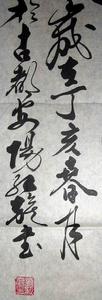 歲在丁亥春月
於古都安陽紅旗書